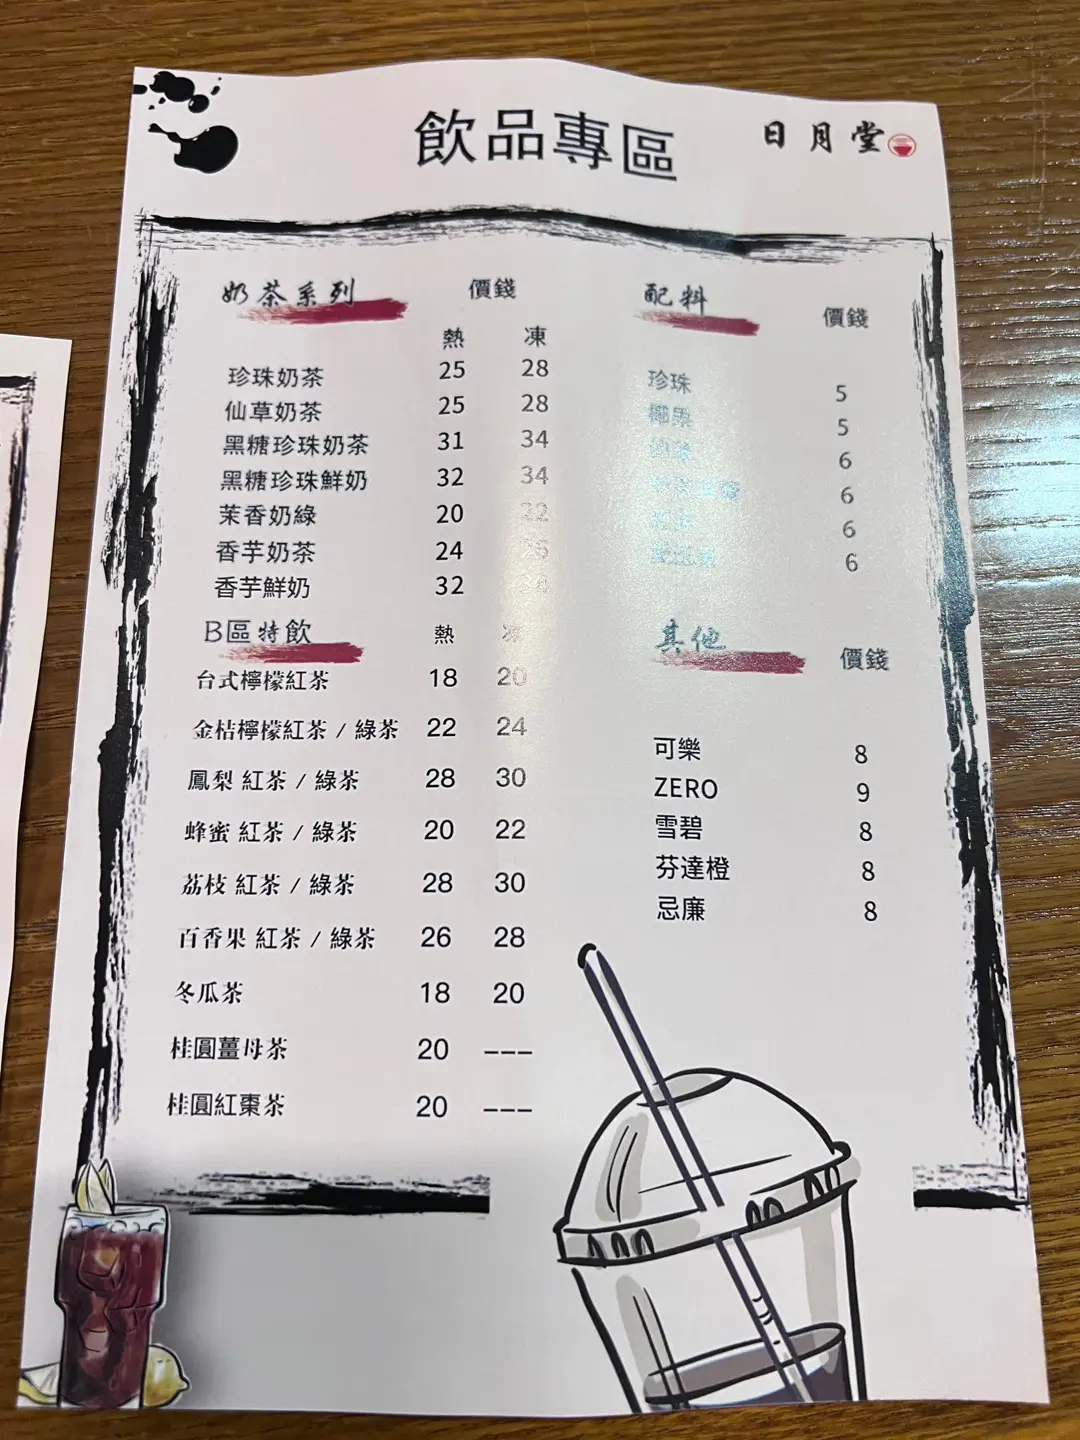 飲品專區
日月堂
奶茶系列 價錢
熱 凍
珍珠奶茶 25 28
仙草奶茶 25 28
黑糖珍珠奶茶 31 34
黑糖珍珠鮮奶 32 34
茉香奶綠 20 22
香芋奶茶 24 26
香芋鮮奶 32 34
B區特飲 熱 凍
台式檸檬紅茶 18 20
金桔檸檬紅茶 / 綠茶 22 24
鳳梨 紅茶 / 綠茶 28 30
蜂蜜 紅茶 / 綠茶 20 22
荔枝 紅茶 / 綠茶 28 30
百香果 紅茶 / 綠茶 26 28
冬瓜茶 18 20
桂圓薑母茶 20 ---
桂圓紅棗茶 20 ---
配料 價錢
珍珠 5
椰果 5
6
6
6
6
其他 價錢
可樂 8
ZERO 9
雪碧 8
芬達橙 8
忌廉 8